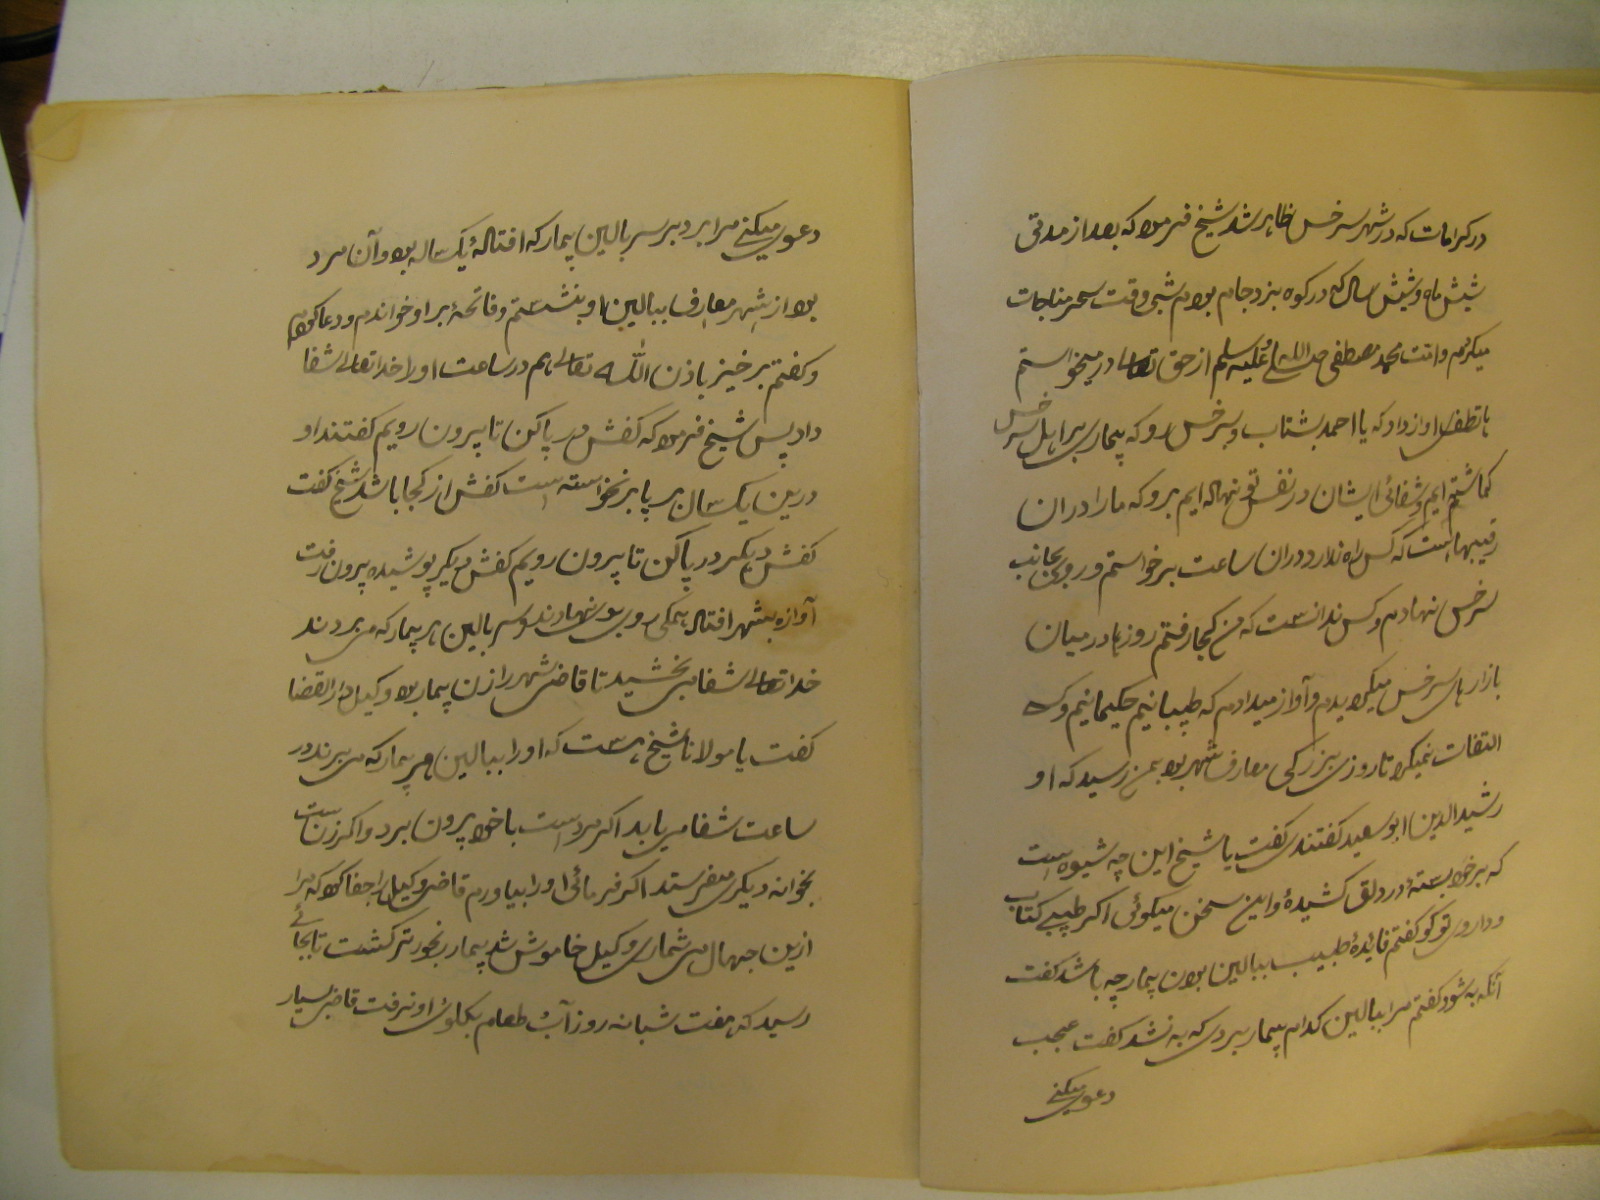 در کرامات که در شهر سرخس ظاهر شد شیخ فرمود که بعد از مدتی
شیش ماه و شیش سال که در کوه بزد جام بودم شبی وقت سحر مناجات
میکردم و امت محمد مصطفی صلی الله علیه وسلم از حق تعالی در میخواستم
هاتفی آواز داد که یا احمد بشتاب و بسرخس رو که بیماری بر اهل سرخس
کماشته ایم و شفائی ایشان در نفس تو نهاده ایم برو که ما را در ان
است که کس راه ندارد دران ساعت برخواستم و روی بجانب
سرخس نهادم و کس ندانست که من کجا رفتم روزها در میان
بازارهای سرخس میکردیدم و آواز میدادم که طبیبانیم حکیمانیم و کسی
التفات نمیکرد تا روزی بزرکی معارف شهر بود بمن رسید که او
رشید الدین ابو سعید کفتندی کفت یا شیخ این چه شیوه است
که بر خود بسته و در دلق کشیدهٔ و این سخن میکوئی اکر طبیبی کتاب
و داروی تو کو کفتم فائدهٔ طبیب ببالین بودن بیمار چه باشد کفت
آنکه به شود کفتم مرا ببالین کدام بیمار بردی که به نشد کفت عجب
دعوی میکنی
دعوی میکنی مرا برد بر سر بالین بیمار که افتادهٔ یکساله بود و آن مرد
بود از شهر معارف ببالین او بنشستم و فاتحهٔ بر او خواندم و دعا کردم
و کفتم برخیز باذن الله تعالی هم در ساعت او را خدا تعالی شفا
داد پس شیخ فرمود که کفش در پا کن تا بیرون رویم کفتند او
درین یکسال بر پا برنخواسته است کفش از کجا باشد شیخ کفت
کفش دیکر در پا کن تا بیرون رویم کفش دیکر پوشیده بیرون رفت
آوازه بشهر افتاد همکی روی بوی نهادند و بسر بالین هر بیمار که می بردند
خدا تعالی شفا می بخشید تا قاضی شهر را زن بیمار بود وکیل دار القضا
کفت یا مولانا شیخ هست که او را ببالین هر بیمار که می برند در
ساعت شفا می یابد اکر مرد است با خود بیرون برد و اکر زن است
بخوانه دیکری میفرستد اکر فرمائی او را بیاورم قاضی وکیل را جفا کرد که مرا
ازین جهال می شماری وکیل خاموش شد بیمار رنجورتر کشت تا بجائی
رسید که هفت شبانه روز آب و طعام بکلوئ او نرفت قاضی بسیار